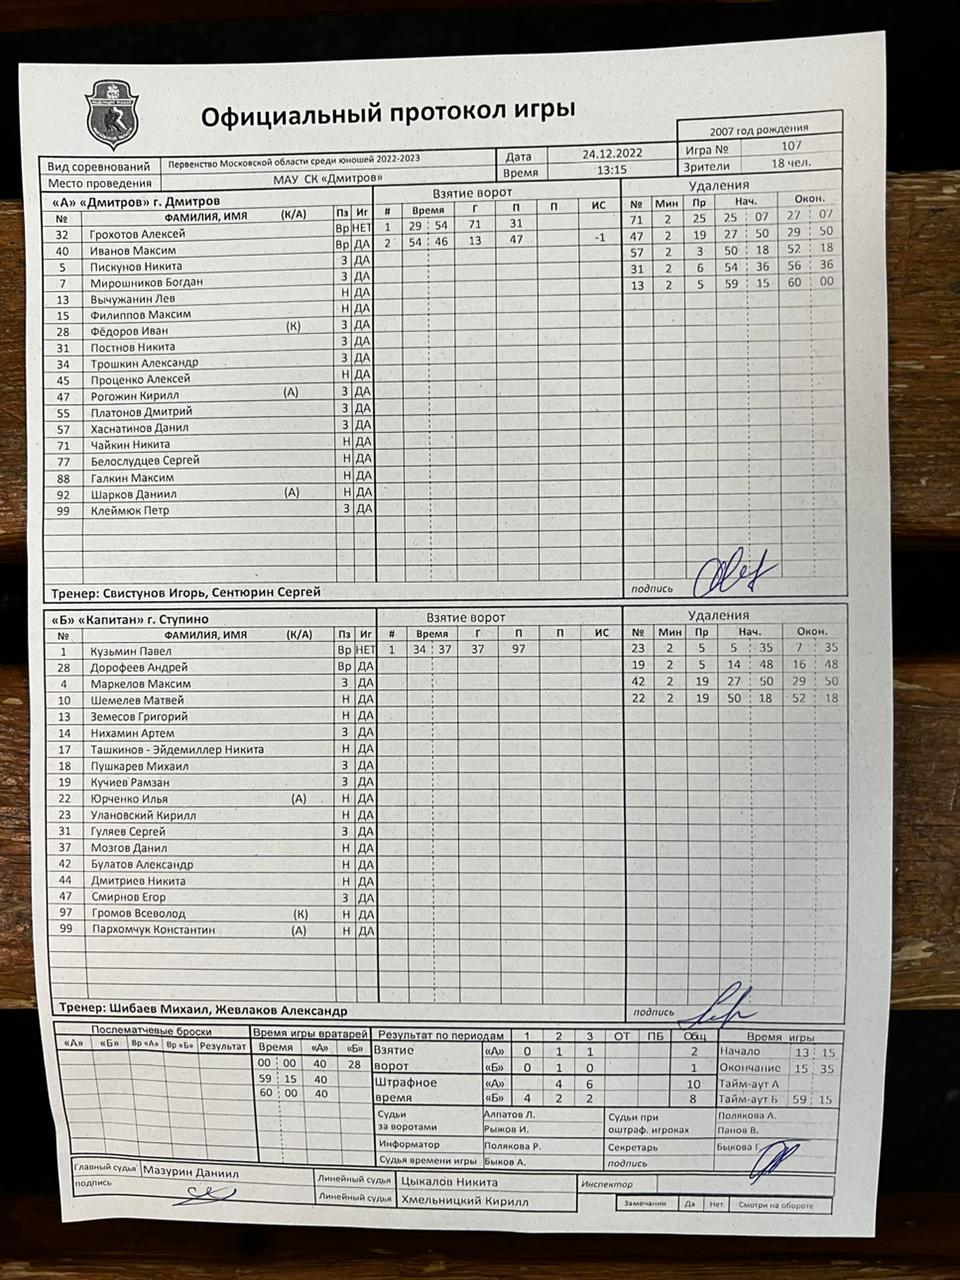 Официальный протокол игры
2007 год рождения
Вид соревнований Первенство Московской области среди юношей 2022-2023 Дата 24.12.2022 Игра № 107
Место проведения МАУ СК «Дмитров» Время 13:15 Зрители 18 чел.
«А» «Дмитров» г. Дмитров Взятие ворот Удаления
№ ФАМИЛИЯ, ИМЯ (К/А) Пз Иг # Время Г П П ИС № Мин Пр Нач. Окон.
32 Грохотов Алексей Вр НЕТ 1 29 54 71 31 71 2 25 25 07 27 07
40 Иванов Максим Вр ДА 2 54 46 13 47 -1 47 2 19 27 50 29 50
5 Пискунов Никита З ДА 57 2 3 50 18 52 18
7 Мирошников Богдан З ДА 31 2 6 54 36 56 36
13 Вычужанин Лев Н ДА 13 2 5 59 15 60 00
15 Филиппов Максим Н ДА
28 Фёдоров Иван (К) З ДА
31 Постнов Никита З ДА
34 Трошкин Александр З ДА
45 Проценко Алексей Н ДА
47 Рогожин Кирилл (А) З ДА
55 Платонов Дмитрий З ДА
57 Хаснатинов Данил З ДА
71 Чайкин Никита Н ДА
77 Белослудцев Сергей Н ДА
88 Галкин Максим Н ДА
92 Шарков Даниил (А) Н ДА
99 Клеймюк Петр З ДА
Тренер: Свистунов Игорь, Сентюрин Сергей подпись
«Б» «Капитан» г. Ступино Взятие ворот Удаления
№ ФАМИЛИЯ, ИМЯ (К/А) Пз Иг # Время Г П П ИС № Мин Пр Нач. Окон.
1 Кузьмин Павел Вр НЕТ 1 34 37 37 97 23 2 5 5 35 7 35
28 Дорофеев Андрей Вр ДА 19 2 5 14 48 16 48
4 Маркелов Максим З ДА 42 2 19 27 50 29 50
10 Шемелев Матвей Н ДА 22 2 19 50 18 52 18
13 Земесов Григорий Н ДА
14 Нихамин Артем З ДА
17 Ташкинов - Эйдемиллер Никита Н ДА
18 Пушкарев Михаил З ДА
19 Кучиев Рамзан З ДА
22 Юрченко Илья (А) Н ДА
23 Улановский Кирилл Н ДА
31 Гуляев Сергей З ДА
37 Мозгов Данил Н ДА
42 Булатов Александр Н ДА
44 Дмитриев Никита Н ДА
47 Смирнов Егор З ДА
97 Громов Всеволод (К) Н ДА
99 Пархомчук Константин (А) Н ДА
Тренер: Шибаев Михаил, Жевлаков Александр подпись
Послематчевые броски Время игры вратарей Результат по периодам 1 2 3 ОТ ПБ Общ Время игры
«А» «Б» Вр «А» Вр «Б» Результат Время «А» «Б» Взятие «А» 0 1 1 2 Начало 13 15
00 00 40 28 ворот «Б» 0 1 0 1 Окончание 15 35
59 15 40 Штрафное «А» 4 6 10 Тайм-аут А
60 00 40 время «Б» 4 2 2 8 Тайм-аут Б 59 15
Судьи Алпатов Л. Судьи при Полякова А.
за воротами Рыжов И. оштраф. игроках Панов В.
Информатор Полякова Р. Секретарь Быкова Г.
Судья времени игры Быков А. подпись
Главный судья Мазурин Даниил Линейный судья Цыкалов Никита Инспектор
подпись Линейный судья Хмельницкий Кирилл Замечания Да Нет Смотри на обороте